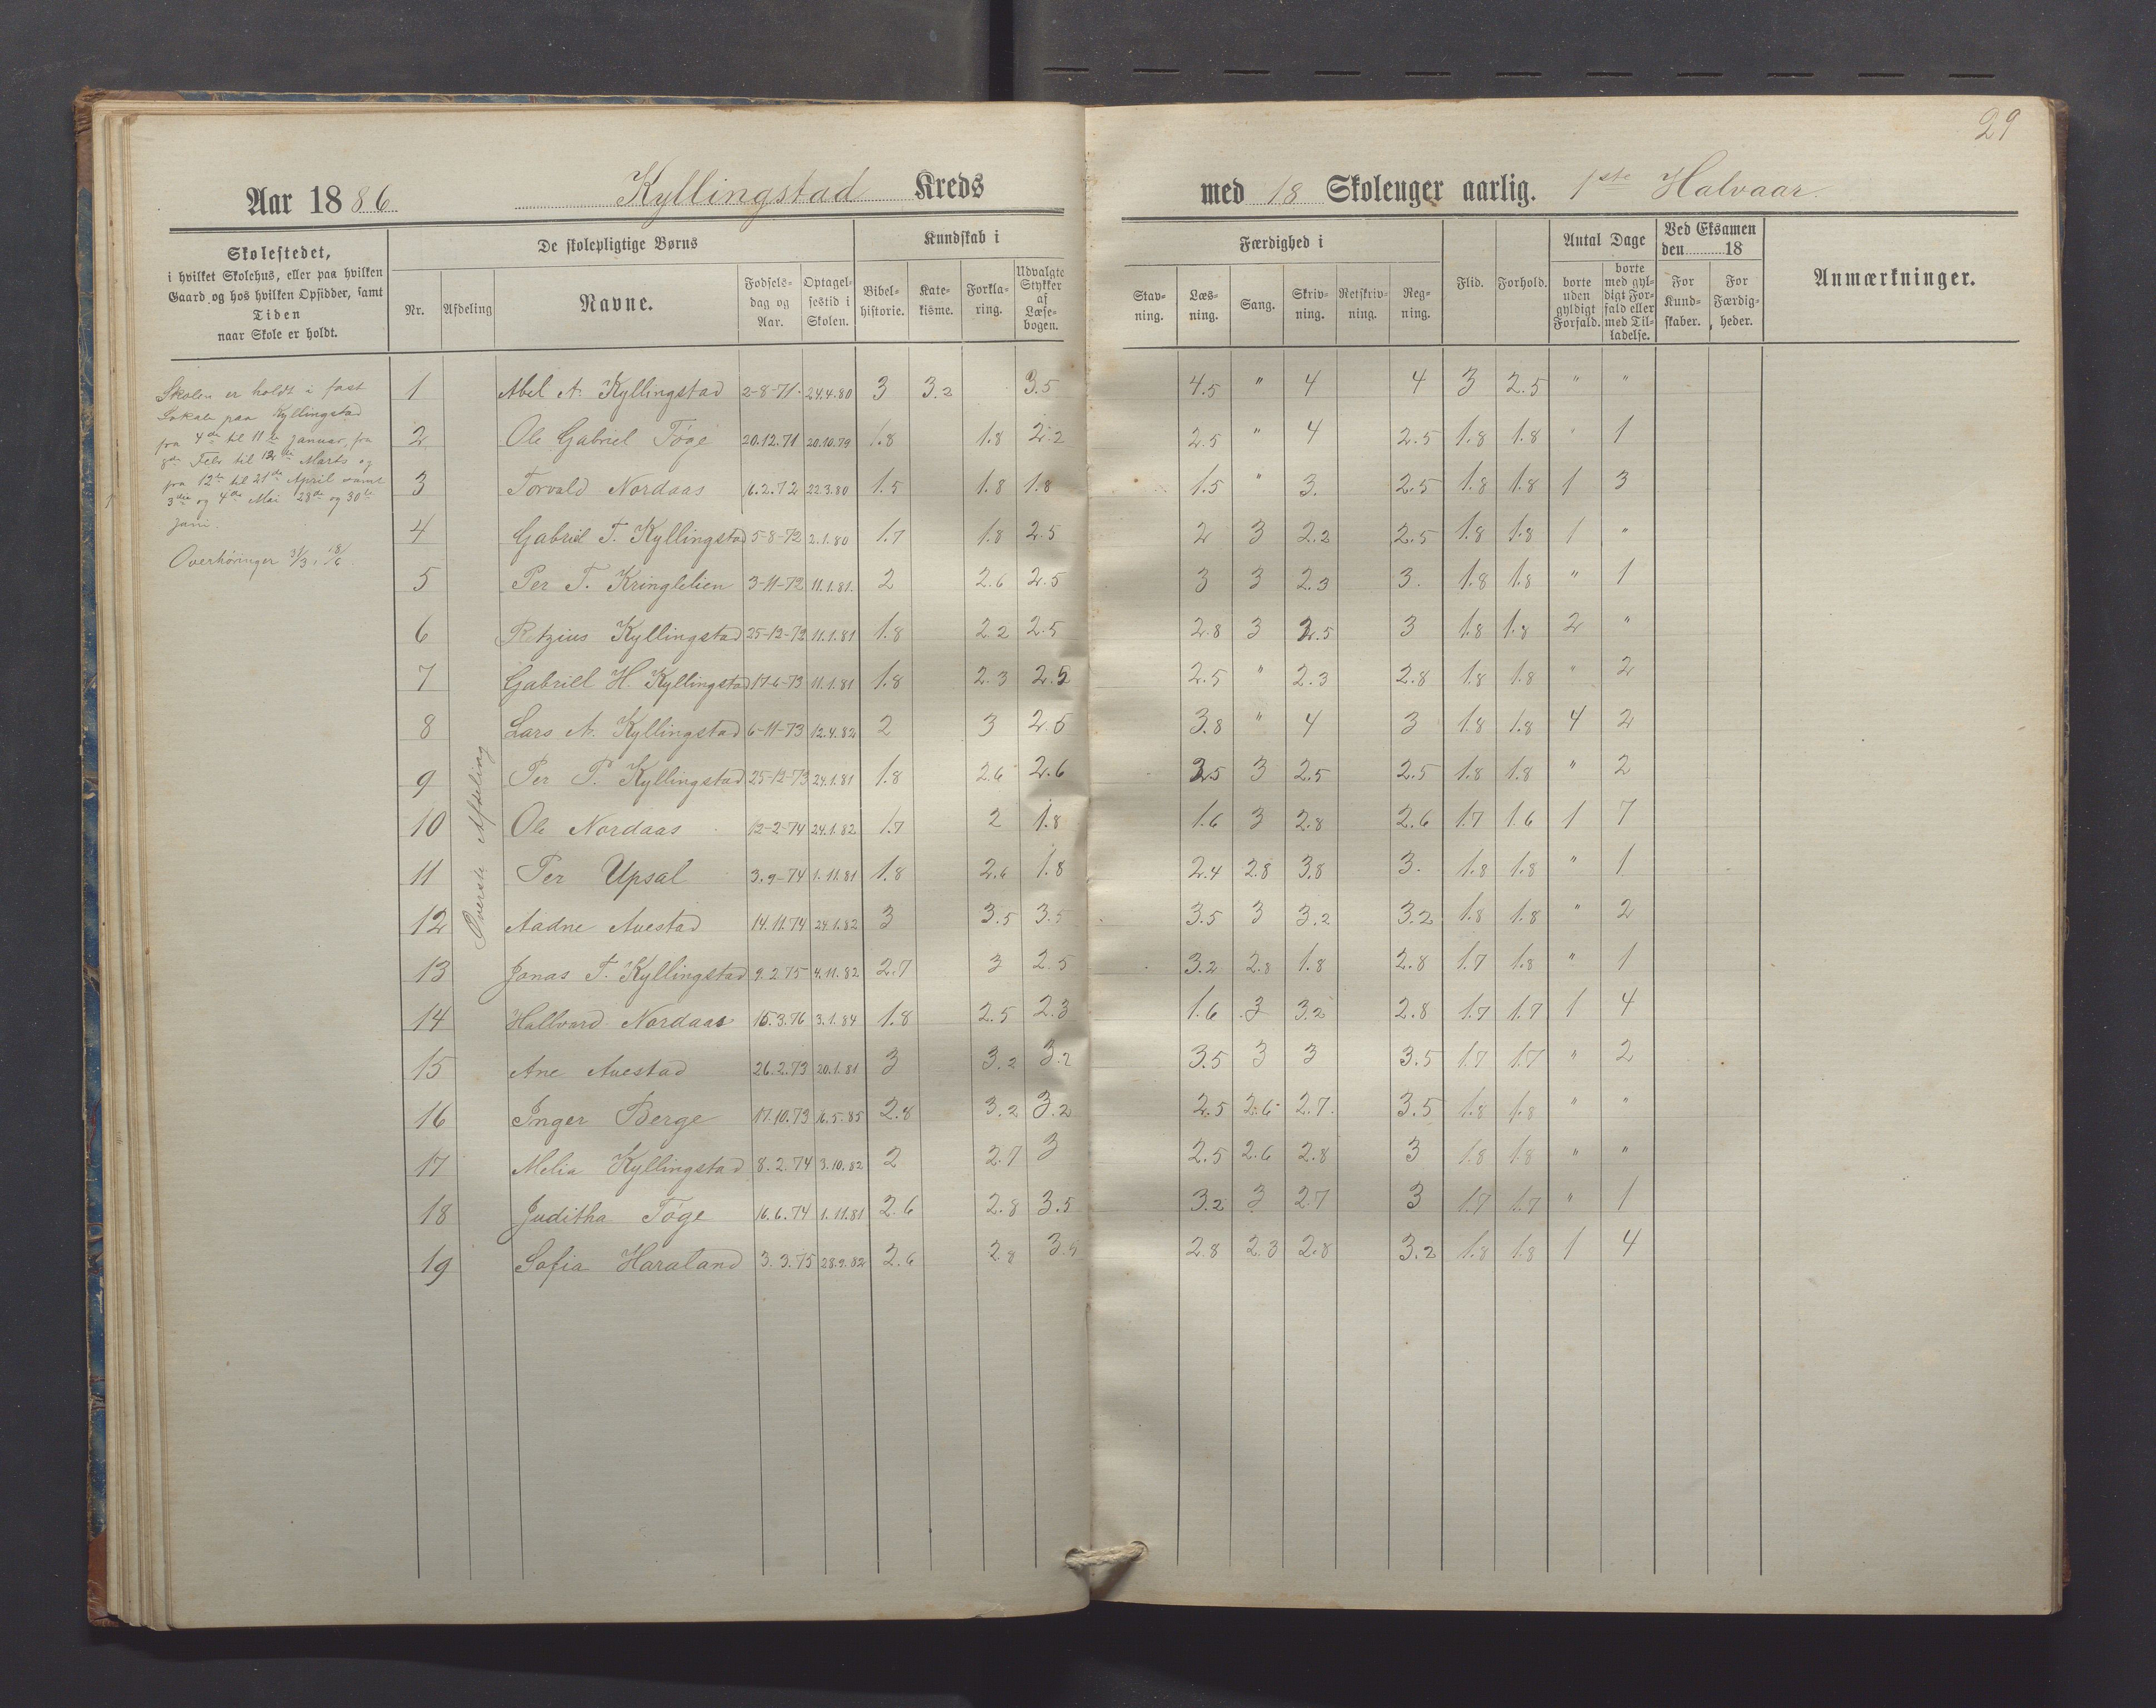 29
Aar 1886 Kyllingstad Kreds med 18 Skolenger aarlig. 1ste Halvaar.
Skolestedet,
i hvilket Skolehus, eller paa hvilken
Gaard og hos hvilken Opsidder, samt
Tiden
naar Skole er holdt.
De skolepligtige Børns
Nr. Afdeling Navne. Fødsels-dag og Aar. Optagel-sestid i Skolen.
Kundskab i
Bibel-historie. Kate-kisme. Forkla-ring. Udvalgte Stykker af Læse-bogen.
Færdighed i
Stav-ning. Læs-ning. Sang. Skriv-ning. Retskriv-ning. Reg-ning.
Flid. Forhold.
Antal Dage
borte uden gyldigt Forfald. borte med gyl-digt For-fald eller med Til-ladelse.
Ved Eksamen den 18
For Kund-skaber. For Færdig-heder.
Anmærkninger.
Skolen er holdt i fast
Lokale paa Kyllingstad
fra 4de til 11te Januar, fra
8de Febr til 12te Marts og
fra 12te til 21de April samt
3die og 4de Mai 28de og 30te
Juni.
Overhøringer 31/3, 18/6.
Øverste Afdeling
1 Abel A. Kyllingstad 2-8-71. 24.4.80 3 3.2 3.5 4.5 " 4 4 3 2.5 " "
2 Ole Gabriel Tøge 20.12.71 20.10.79 1.8 1.8 2.2 2.5 " 4 2.5 1.8 1.8 " 1
3 Torvald Nordaas 6.2.72 22.3.80 1.5 1.8 1.8 1.5 " 3. 2.5 1.8 1.8 1 3
4 Gabriel T. Kyllingstad 5-8-72 2.1.80 1.7 1.8 2.5 2 3 2.2 2.5 1.8 1.8 1 "
5 Per T. Kringlelien 3-11-72 11.1.81. 2 2.6 2.5 3 3 2.3 3. 1.8 1.8 " 1
6 Retzius Kyllingstad 25-12-72 11.1.81 1.8 2.2 2.5 2.8 3 2.5 3 1.8 1.8 2 "
7 Gabriel H. Kyllingstad 17-6-73 11.1.81 1.8 2.3 2.5 2.5 " 2.3 2.8 1.8 1.8 " 2
8 Lars A. Kyllingstad 6-11-73 12.4.82 2 3 2.5 3.8 " 4 3 1.8 1.8 4 2
9 Per P. Kyllingstad 25-12-73 24.1.81 1.8 2.6 2.6 2.5 3 2.5 2.5 1.8 1.8 " 2
10 Ole Nordaas 12-2-74 24.1.82 1.7 2 1.8 1.6 3 2.8 2.6 1.7 1.6 1 7
11 Per Upsal 3.9-74 1.11.81 1.8 2.6 1.8 2.4 2.8 3.8 3. 1.8 1.8 " 1
12 Aadne Auestad 14.11.74 24.1.82 3 3.5 3.5 3.5 3 3.2 3.2 1.8 1.8 " 2
13 Jonas T. Kyllingstad 9.2.75 4.11.82 2.7 3 2.5 3.2 2.8 1.8 2.8 1.7 1.8 " 1
14 Hallvard Nordaas 15.3.76 3.1.84 1.8 2.5 2.3 1.6 3 3.2 2.8 1.7 1.7 1 4
15 Ane Auestad 26.2.73 20.1.81 3 3.2 3.2 3.5 3 3 3.5 1.7 1.7 " 2
16 Inger Berge 17.10.73 16.5.85 2.8 3.2 3.2 2.5 2.6 2.7. 3.5 1.8 1.8 " "
17 Melia Kyllingstad 8.2.74 3.10.82 2 2.7 3 2.5 2.6 2.8 3 1.8 1.8 " "
18 Juditha Tøge 16.6.74 1.11.81 2.6 2.8 3.5 3.2 3 2.7 3 1.7 1.7 " 1
19 Sofia Haraland 3.3.75 28.9.82 2.6 2.8 3.5 2.8 2.3 2.8 3.2 1.8 1.8 1 4